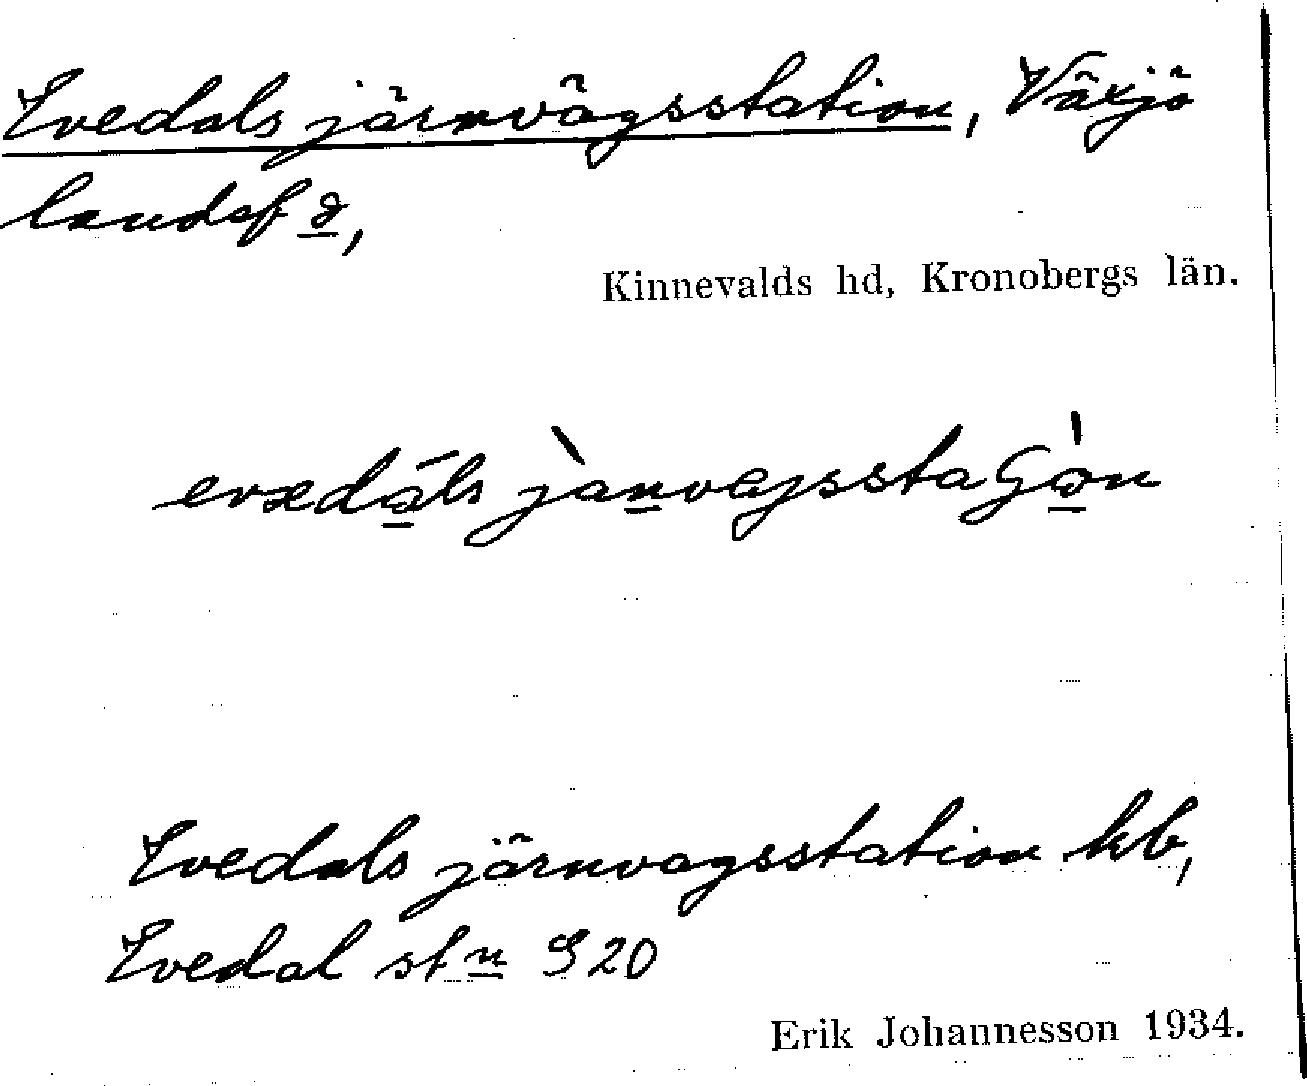 Evedals järnvägsstation, Växjö
landsf d,
Kinnevalds hd, Kronobergs län.
Evedals järnvagsstation kb,
Evedal stn S 20
Erik Johannesson 1934.